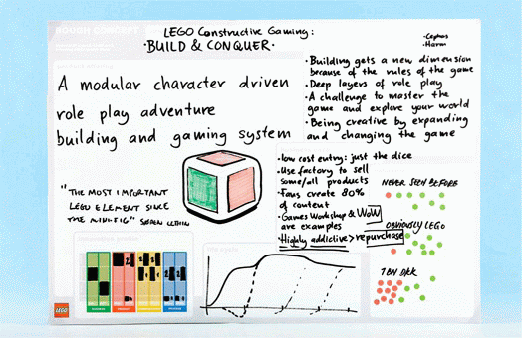 ROUGH CONCEPT
LEGO Constructive Gaming:
· BUILD & CONQUER ·
- Cephas
A modular character driven
role play adventure
building and gaming system
· Building gets a new dimension
because of the rules of the game
· Deep layers of role play
· A challenge to master the
game and explore your world
· Being creative by expanding
and changing the game
"THE MOST IMPORTANT
LEGO ELEMENT SINCE
THE MINI-FIG"
· low cost entry: just the dice
· Use factory to sell
some/all products
· Fans create 80%
of content
· Games Workshop & WoW
are examples
· Highly addictive > repurchase
NEVER SEEN BEFORE
OBVIOUSLY LEGO
1 BN DKK
LEGO